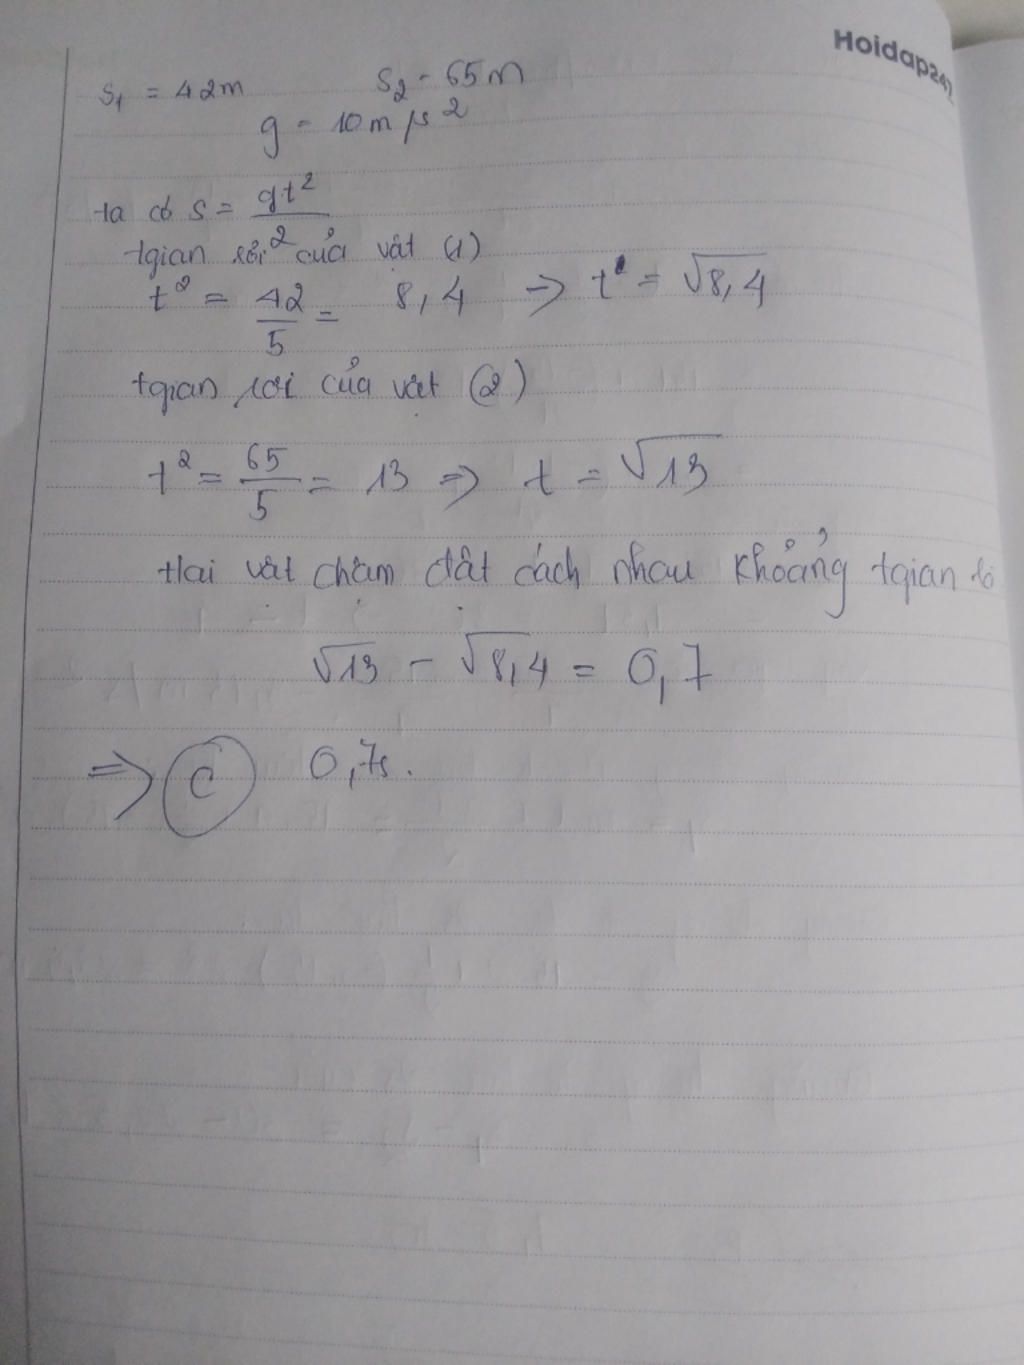 Hoidap247
S₁ = 42m S₂ = 65m
g = 10m/s²
ta có s = gt²/2
tgian rơi của vật (1)
t² = 42/5 = 8,4 => t = √8,4
tgian rơi của vật (2)
t² = 65/5 = 13 => t = √13
Hai vật chạm đất cách nhau khoảng tgian là
√13 - √8,4 = 0,7
=> C 0,7s.